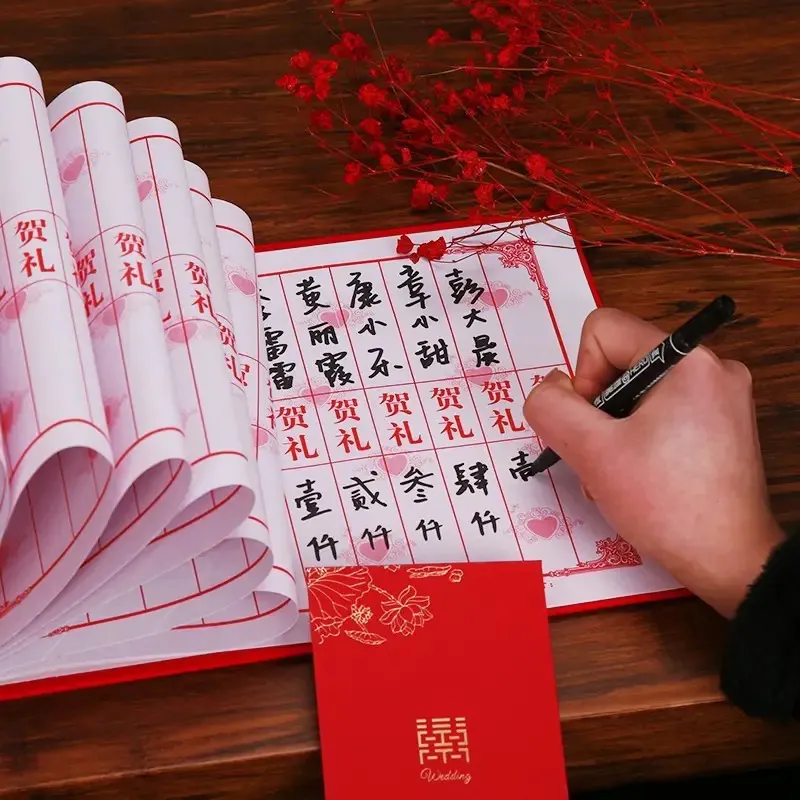 彭大晨
贺礼
壹
章小甜
贺礼
肆仟
康小乐
贺礼
叁仟
黄丽霞
贺礼
贰仟
雷雷
贺礼
壹仟
贺礼
贺礼
贺礼
贺礼
贺礼
囍
Wedding